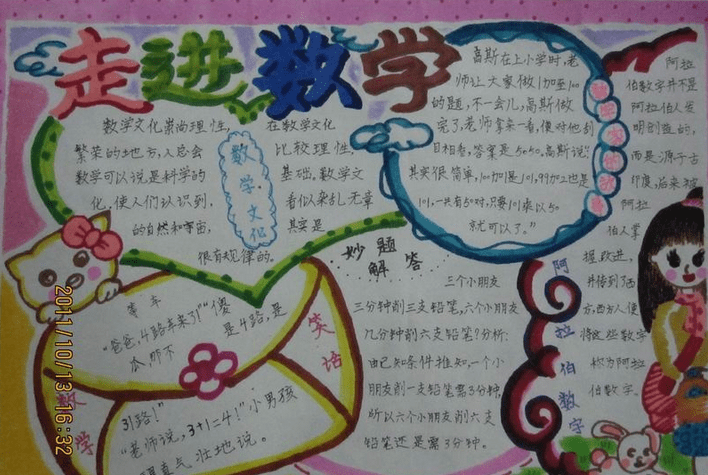 走进数学
数学文化崇尚理性,
繁荣的地方,人总会
数学可以说是科学的
化,使人们认识到,
的自然和宇宙,
很有规律的.
在数学文化
比较理性,
基础,数学文
看似杂乱无章
其实是
数学·文化
高斯在上小学时,老
师让大家做1加至100
的题,不一会儿,高斯做
完了,老师拿来一看,便对他刮
目相看,答案是5050.高斯说:
其实很简单,100加1是101,99加2也是
101,一共有50对,只要101乘以50
就可以了。"
阿拉
伯数字并不是
阿拉伯人发
明创造的,
而是源于古
印度,后来被
阿拉
伯人掌
握、改进,
并传到了西
方,西方人便
将这些数字
称为阿拉
伯数字.
阿拉伯数字
妙题
解答
三个小朋友
三分钟削三支铅笔,六个小朋友
几分钟削六支铅笔?分析:
由已知条件推知,一个小
朋友削一支铅笔需3分钟,
所以六个小朋友削六支
铅笔还是需3分钟。
等车
"爸爸,4路车来了!""傻
瓜,那不
是4路,是
31路!"
"老师说,3+1=4!"小男孩
壮地说。
数学
笑话
2011/10/13 16:32